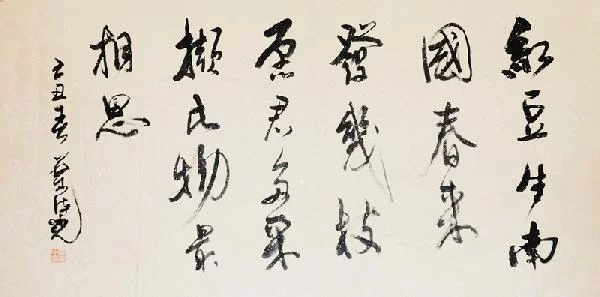 紅豆生南
國春來
發幾枝
愿君多采
擷此物最
相思
丑春